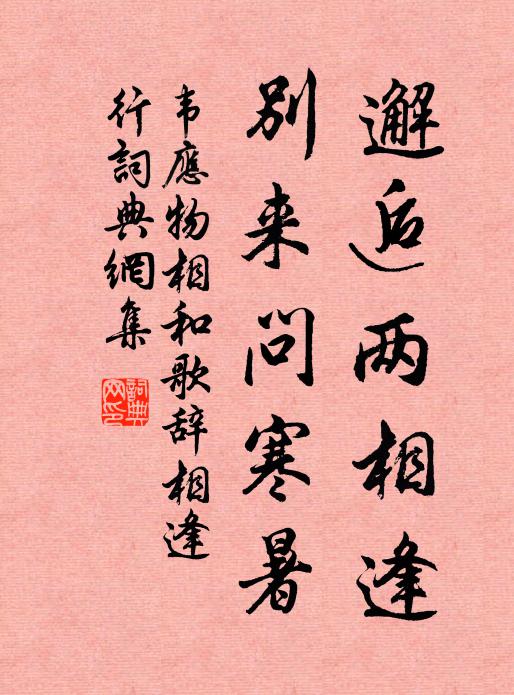 邂逅两相逢
别来问寒暑
韦應物相和歌辞相逢
行詞典網集
詞典
网印